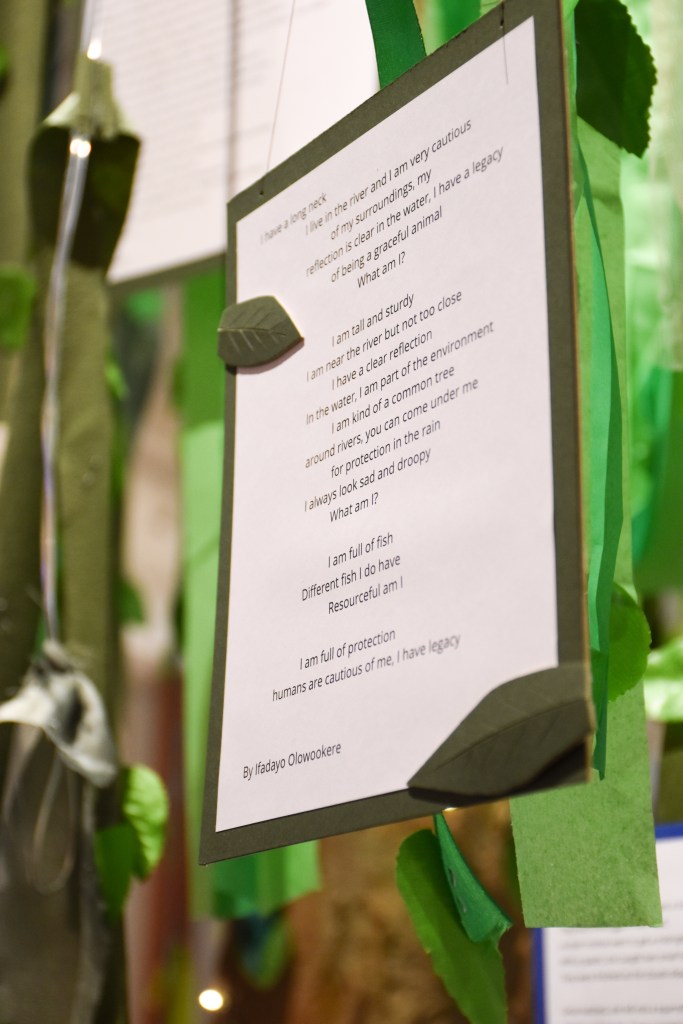 I have a long neck
I live in the river and I am very cautious
of my surroundings, my
reflection is clear in the water, I have a legacy
of being a graceful animal
What am I?
I am tall and sturdy
I am near the river but not too close
I have a clear reflection
In the water, I am part of the environment
I am kind of a common tree
around rivers, you can come under me
for protection in the rain
I always look sad and droopy
What am I?
I am full of fish
Different fish I do have
Resourceful am I
I am full of protection
humans are cautious of me, I have legacy
By Ifadayo Olowookere